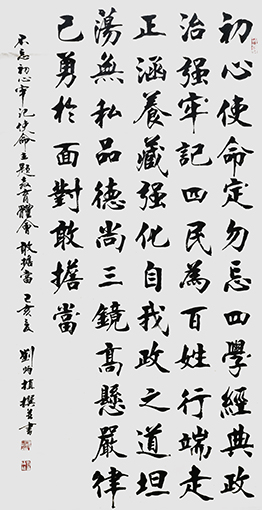 初心使命定勿忘四學經典政
治强牢記四民為百姓行端走
正涵養藏强化自我政之道坦
蕩無私品德尚三鏡高懸嚴律
己勇於面對敢擔當
不忘初心牢記使命主題教育體會 敢擔當 己亥夏 劉植撰並書